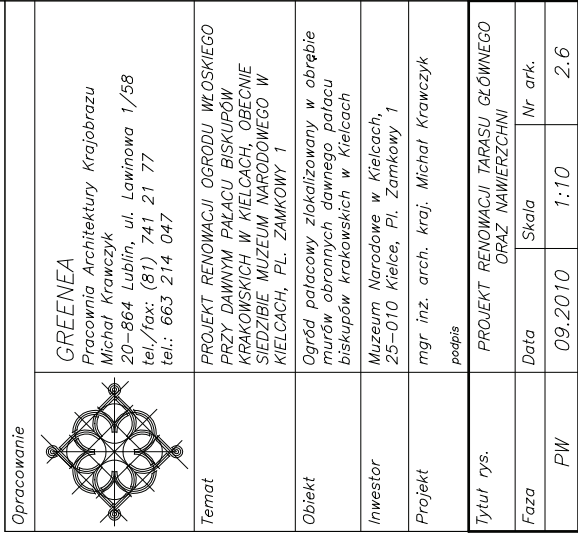 Opracowanie
GREENEA
Pracownia Architektury Krajobrazu
Michał Krawczyk
20-864 Lublin, ul. Lawinowa 1/58
tel./fax: (81) 741 21 77
tel.: 663 214 047
Temat
PROJEKT RENOWACJI OGRODU WŁOSKIEGO
PRZY DAWNYM PAŁACU BISKUPÓW
KRAKOWSKICH W KIELCACH, OBECNIE
SIEDZIBIE MUZEUM NARODOWEGO W
KIELCACH, PL. ZAMKOWY 1
Obiekt
Ogród pałacowy zlokalizowany w obrębie
murów obronnych dawnego pałacu
biskupów krakowskich w Kielcach
Inwestor
Muzeum Narodowe w Kielcach,
25-010 Kielce, Pl. Zamkowy 1
Projekt
mgr inż. arch. kraj. Michał Krawczyk
podpis
Tytuł rys.
PROJEKT RENOWACJI TARASU GŁÓWNEGO
ORAZ NAWIERZCHNI
Faza Data Skala Nr ark.
PW 09.2010 1:10 2.6